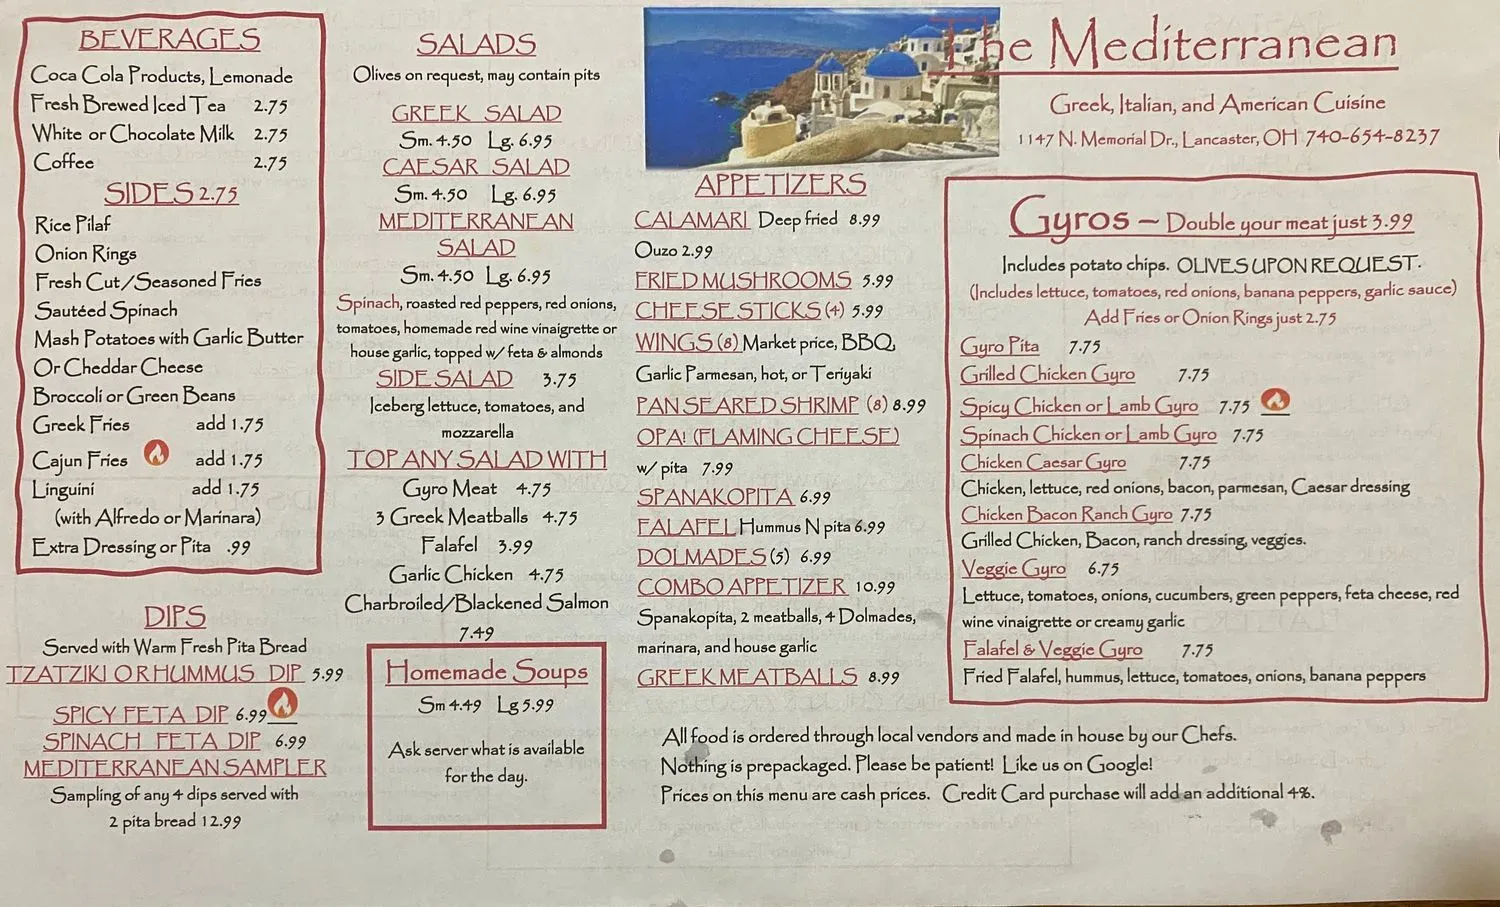 BEVERAGES
Coca Cola Products, Lemonade
Fresh Brewed Iced Tea 2.75
White or Chocolate Milk 2.75
Coffee 2.75
SIDES 2.75
Rice Pilaf
Onion Rings
Fresh Cut/Seasoned Fries
Sautéed Spinach
Mash Potatoes with Garlic Butter
Or Cheddar Cheese
Broccoli or Green Beans
Greek Fries add 1.75
Cajun Fries add 1.75
Linguini add 1.75
(with Alfredo or Marinara)
Extra Dressing or Pita .99
DIPS
Served with Warm Fresh Pita Bread
TZATZIKI OR HUMMUS DIP 5.99
SPICY FETA DIP 6.99
SPINACH FETA DIP 6.99
MEDITERRANEAN SAMPLER
Sampling of any 4 dips served with
2 pita bread 12.99
SALADS
Olives on request, may contain pits
GREEK SALAD
Sm. 4.50 Lg. 6.95
CAESAR SALAD
Sm. 4.50 Lg. 6.95
MEDITERRANEAN
SALAD
Sm. 4.50 Lg. 6.95
Spinach, roasted red peppers, red onions,
tomatoes, homemade red wine vinaigrette or
house garlic, topped w/ feta & almonds
SIDE SALAD 3.75
Iceberg lettuce, tomatoes, and
mozzarella
TOP ANY SALAD WITH
Gyro Meat 4.75
3 Greek Meatballs 4.75
Falafel 3.99
Garlic Chicken 4.75
Charbroiled/Blackened Salmon
7.49
Homemade Soups
Sm 4.49 Lg 5.99
Ask server what is available
for the day.
The Mediterranean
Greek, Italian, and American Cuisine
1147 N. Memorial Dr., Lancaster, OH 740-654-8237
APPETIZERS
CALAMARI Deep fried 8.99
Ouzo 2.99
FRIED MUSHROOMS 5.99
CHEESE STICKS (4) 5.99
WINGS (8) Market price, BBQ,
Garlic Parmesan, hot, or Teriyaki
PAN SEARED SHRIMP (8) 8.99
OPA! (FLAMING CHEESE)
w/ pita 7.99
SPANAKOPITA 6.99
FALAFEL Hummus N pita 6.99
DOLMADES (5) 6.99
COMBO APPETIZER 10.99
Spanakopita, 2 meatballs, 4 Dolmades,
marinara, and house garlic
GREEK MEATBALLS 8.99
Gyros – Double your meat just 3.99
Includes potato chips. OLIVES UPON REQUEST.
(Includes lettuce, tomatoes, red onions, banana peppers, garlic sauce)
Add Fries or Onion Rings just 2.75
Gyro Pita 7.75
Grilled Chicken Gyro 7.75
Spicy Chicken or Lamb Gyro 7.75
Spinach Chicken or Lamb Gyro 7.75
Chicken Caesar Gyro 7.75
Chicken, lettuce, red onions, bacon, parmesan, Caesar dressing
Chicken Bacon Ranch Gyro 7.75
Grilled Chicken, Bacon, ranch dressing, veggies.
Veggie Gyro 6.75
Lettuce, tomatoes, onions, cucumbers, green peppers, feta cheese, red
wine vinaigrette or creamy garlic
Falafel & Veggie Gyro 7.75
Fried Falafel, hummus, lettuce, tomatoes, onions, banana peppers
All food is ordered through local vendors and made in house by our Chefs.
Nothing is prepackaged. Please be patient! Like us on Google!
Prices on this menu are cash prices. Credit Card purchase will add an additional 4%.